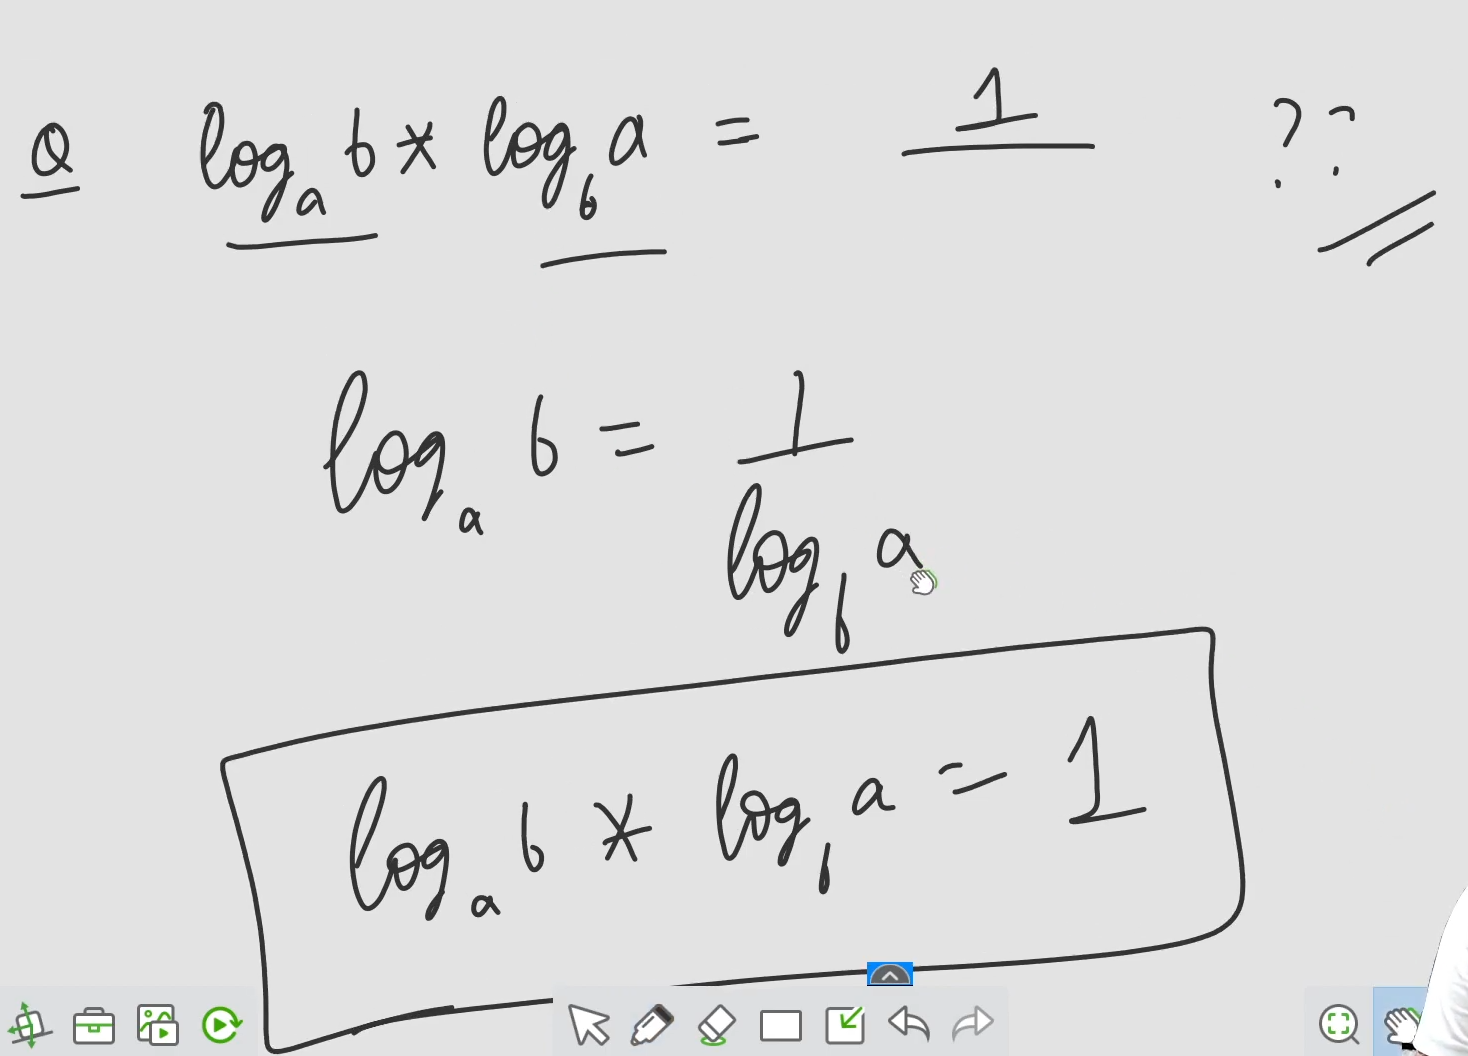 Q log_a b * log_b a = 1 ??
log_a b = 1 / log_b a
log_a b * log_b a = 1